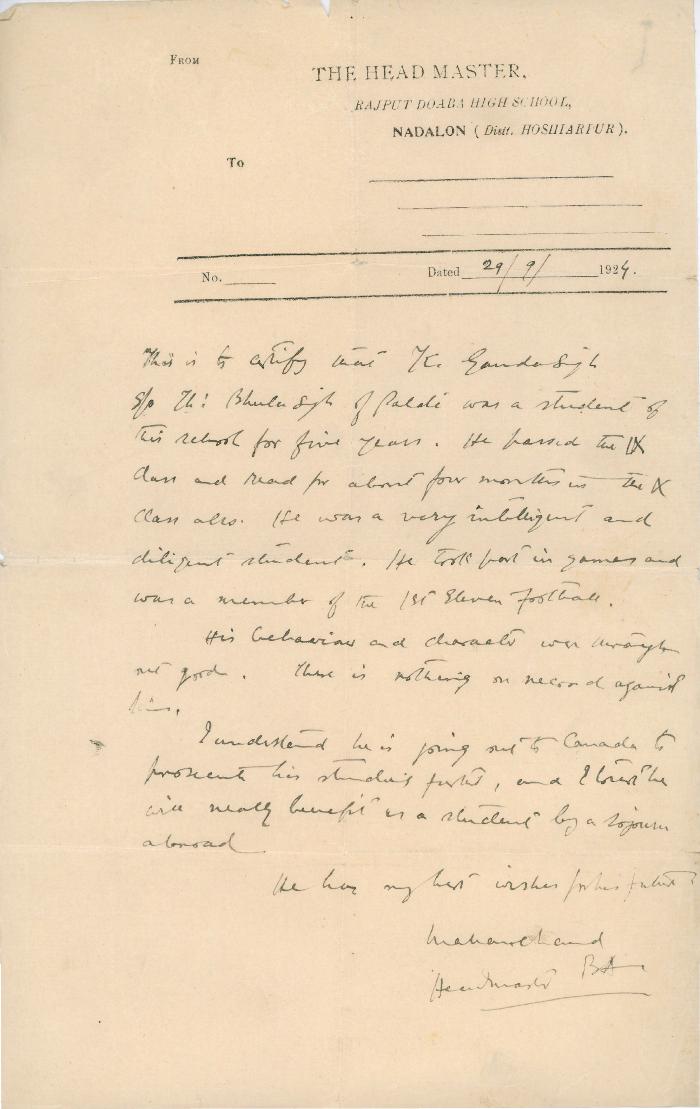 FROM
THE HEAD MASTER,
RAJPUT DOABA HIGH SCHOOL,
NADALON ( Distt. HOSHIARPUR ).
To
No. Dated 29/9/ 1924.
This is to certify that Ganda Singh
S/o Th: Bhula Singh of Paldi was a student of
this school for five years. He passed the IX
class and read for about four months in the X
class also. He was a very intelligent and
diligent student. He took part in games and
was a member of the 1st Eleven Football.
His behaviour and character were through
out good. There is nothing on record against
him.
I understand he is going out to Canada to
prosecute his studies further, and I trust he
will really benefit as a student by a sojourn
abroad
He has my best wishes for his future
Headmaster BA